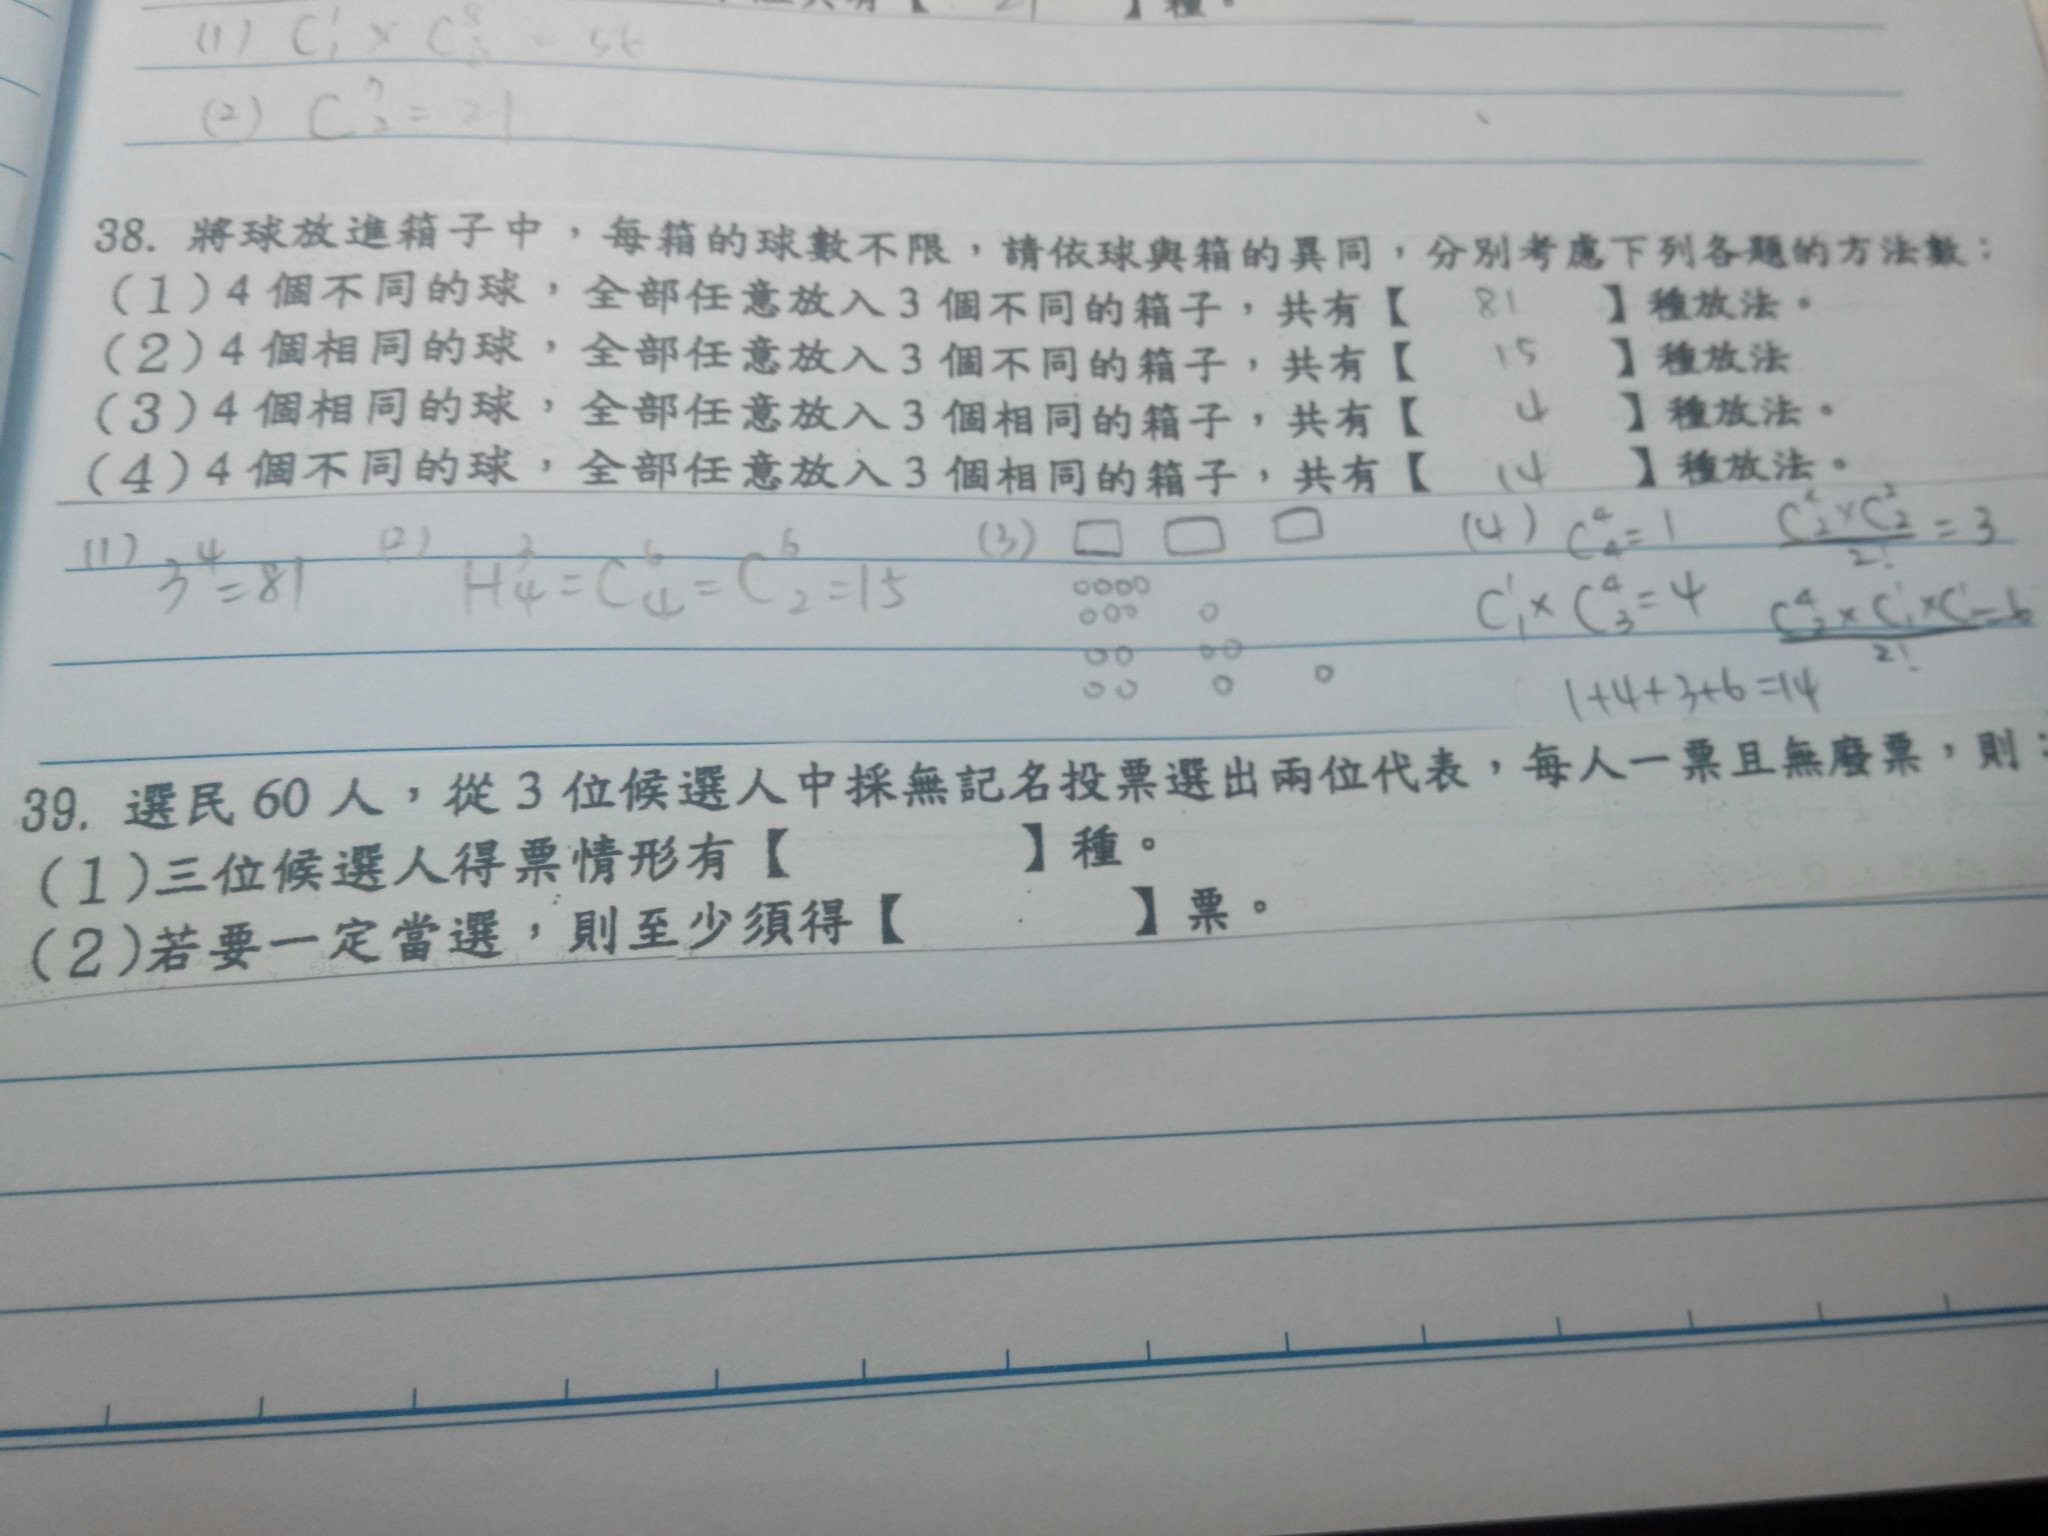 【 21 】種。
(1) C¹₁ × C⁸ = 56
(2) C⁷₂ = 21
38. 將球放進箱子中，每箱的球數不限，請依球與箱的異同，分別考慮下列各題的方法數：
(1)4個不同的球，全部任意放入3個不同的箱子，共有【 81 】種放法。
(2)4個相同的球，全部任意放入3個不同的箱子，共有【 15 】種放法
(3)4個相同的球，全部任意放入3個相同的箱子，共有【 4 】種放法。
(4)4個不同的球，全部任意放入3個相同的箱子，共有【 14 】種放法。
(1) 3⁴=81 (2) H³₄=C⁶₄=C⁶₂=15 (3) (4) C⁴₄=1 C⁴₂×C²₂/2!=3
C¹₁×C⁴₃=4 C⁴₂×C¹₁×C¹/2!=6
1+4+3+6=14
39. 選民60人，從3位候選人中採無記名投票選出兩位代表，每人一票且無廢票，則：
(1)三位候選人得票情形有【 】種。
(2)若要一定當選，則至少須得【 】票。